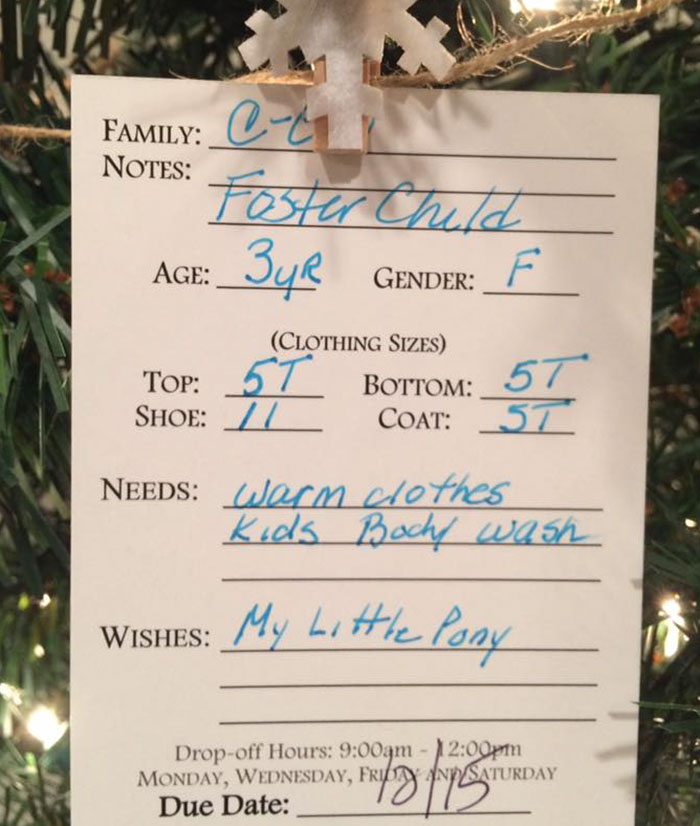 FAMILY:
NOTES:
Foster Child
AGE: 3yR GENDER: F
(CLOTHING SIZES)
TOP: 5T BOTTOM: 5T
SHOE: 11 COAT: 5T
NEEDS: warm clothes
Kids Body wash
WISHES: My Little Pony
Drop-off Hours: 9:00am - 12:00pm
MONDAY, WEDNESDAY, FRIDAY AND SATURDAY
Due Date: 12/15